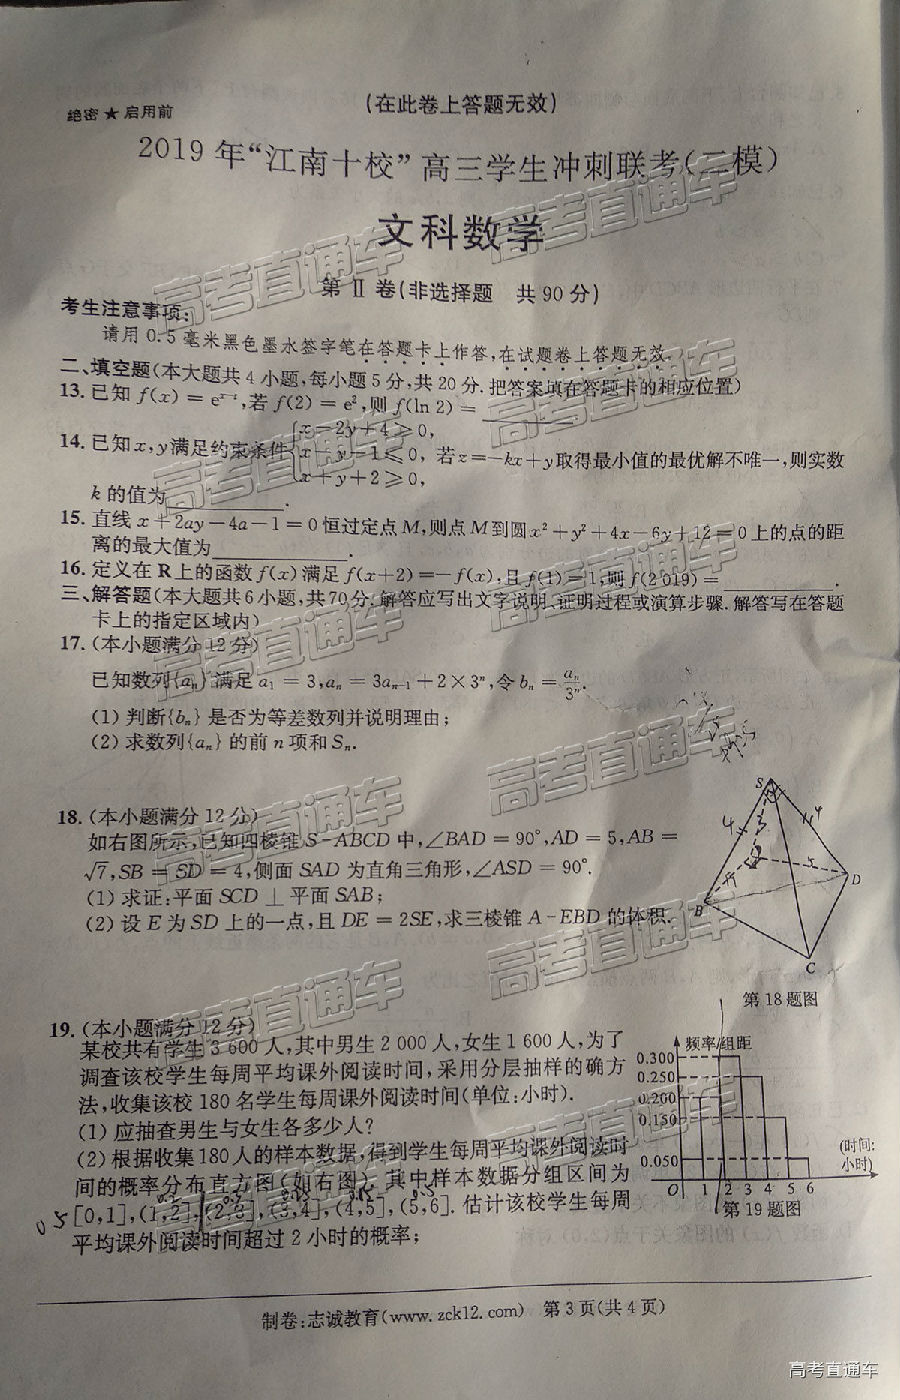 (在此卷上答题无效)
绝密★启用前
2019年“江南十校”高三学生冲刺联考(二模)
文科数学
第Ⅱ卷(非选择题 共90分)
考生注意事项:
请用0.5毫米黑色墨水签字笔在答题卡上作答,在试题卷上答题无效.
二、填空题(本大题共4小题,每小题5分,共20分.把答案填在答题卡的相应位置)
13.已知 f(x)=eˣ⁻ᵗ,若 f(2)=e²,则 f(ln 2)=
x-2y+4≥0,
14.已知x,y满足约束条件{x+y-1≤0, 若z=-kx+y取得最小值的最优解不唯一,则实数
x+y+2≥0,
k的值为________.
15.直线x+2ay-4a-1=0恒过定点M,则点M到圆x²+y²+4x-6y+12=0上的点的距
离的最大值为________.
16.定义在R上的函数f(x)满足f(x+2)=-f(x),且f(1)=1,则f(2 019)=________.
三、解答题(本大题共6小题,共70分.解答应写出文字说明、证明过程或演算步骤.解答写在答题
卡上的指定区域内)
17.(本小题满分12分)
已知数列{aₙ}满足a₁=3,aₙ=3aₙ₋₁+2×3ⁿ,令bₙ=aₙ/3ⁿ.
(1)判断{bₙ}是否为等差数列并说明理由;
(2)求数列{aₙ}的前n项和Sₙ.
18.(本小题满分12分)
如右图所示,已知四棱锥S-ABCD中,∠BAD=90°,AD=5,AB=
√7,SB=SD=4,侧面SAD为直角三角形,∠ASD=90°.
(1)求证:平面SCD⊥平面SAB;
(2)设E为SD上的一点,且DE=2SE,求三棱锥A-EBD的体积.
S
4
4
B
D
C
第18题图
19.(本小题满分12分)
某校共有学生3 600人,其中男生2 000人,女生1 600人,为了
调查该校学生每周平均课外阅读时间,采用分层抽样的确方
法,收集该校180名学生每周课外阅读时间(单位:小时).
(1)应抽查男生与女生各多少人?
(2)根据收集180人的样本数据,得到学生每周平均课外阅读时
间的概率分布直方图(如右图),其中样本数据分组区间为
[0,1],(1,2],(2,3],(3,4],(4,5],(5,6].估计该校学生每周
平均课外阅读时间超过2小时的概率;
频率/组距
0.300
0.250
0.200
0.150
0.050
O 1 2 3 4 5 6
(时间:
小时)
第19题图
制卷:志诚教育(www.zck12.com) 第3页(共4页)
高考直通车